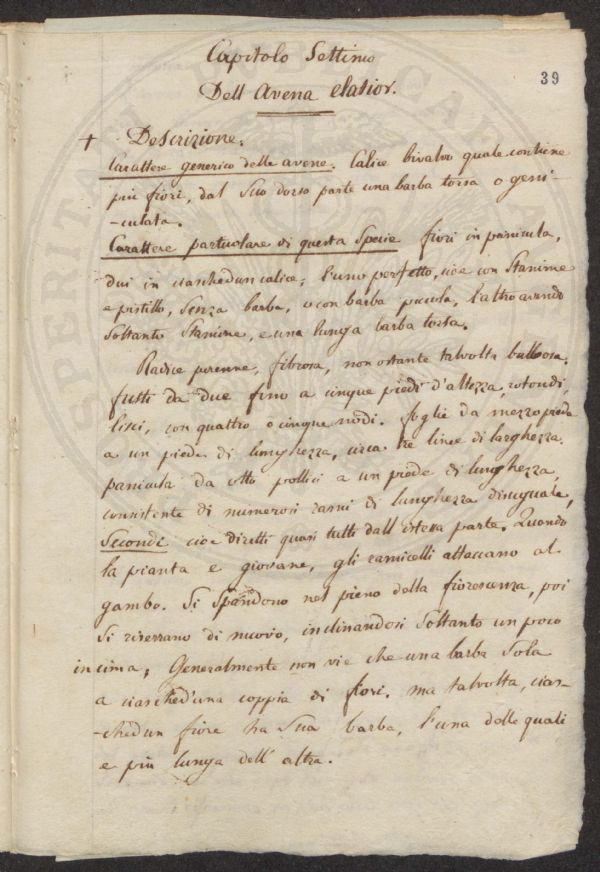 Capitolo Settimo
39
Dell Avena elatior.
+ Descrizione.
Carattere generico delle avene. Calice bivalvo quale contiene
più fiori, dal suo dorso parte una barba torsa o geni-
-culata.
Carattere particolare di questa Specie fiori in panicula,
dui in ciascheduncalice; l'uno perfetto, cioè con Stamine
e pistillo, Senza barba, o con barba piccola, l'altro avendo
Soltanto Stamine, e una lunga barba torta.
Radice perenne, fibrosa, non ostante talvolta bulbosa.
fusti da due fino a cinque piedi d'altezza, rotondi,
lisci, con quattro o cinque nodi. foglie da mezzo piede
a un piede di lunghezza, circa tre linee di larghezza.
panicula da otto pollici a un piede di lunghezza,
consistente di numerosi rami di lunghezza disuguale,
Secondi cioe diretti quasi tutti dall'istessa parte. Quando
la pianta e giovane, gli ramicelli attaccano al
gambo. Si Spandono nel pieno della fiorescenza, poi
Si riserrano di nuovo, inclinandosi Soltanto un poco
in cima, Generalmente non vie che una barba Sola
a ciasched'una coppia di fiori. ma talvolta, cias-
-chedun fiore ha Sua barba, l'una delle quali
e più lunga dell'altra.